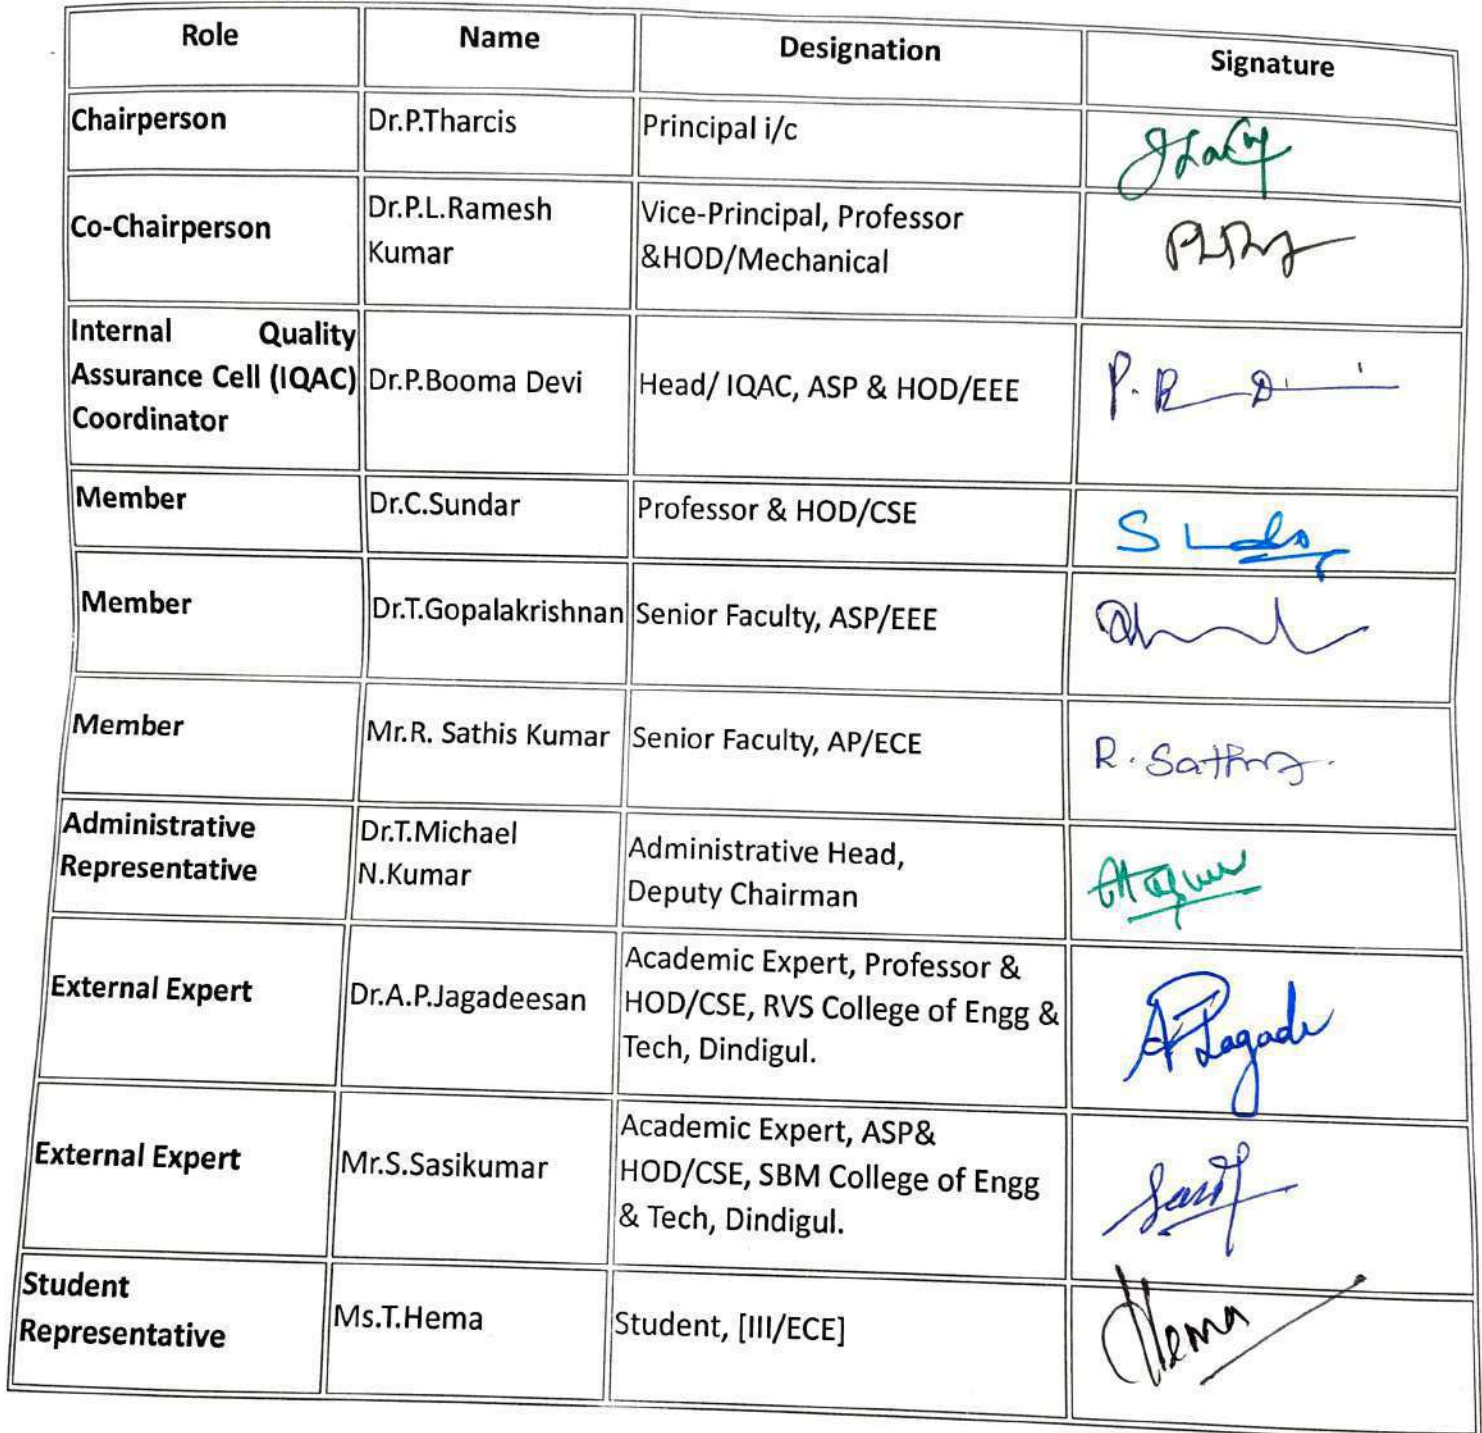 Role Name Designation Signature
Chairperson Dr.P.Tharcis Principal i/c
Co-Chairperson Dr.P.L.Ramesh
Kumar
Vice-Principal, Professor
&HOD/Mechanical
Internal Quality
Assurance Cell (IQAC)
Coordinator
Dr.P.Booma Devi Head/ IQAC, ASP & HOD/EEE
Member Dr.C.Sundar Professor & HOD/CSE
Member Dr.T.Gopalakrishnan Senior Faculty, ASP/EEE
Member Mr.R. Sathis Kumar Senior Faculty, AP/ECE
Administrative
Representative
Dr.T.Michael
N.Kumar
Administrative Head,
Deputy Chairman
External Expert Dr.A.P.Jagadeesan
Academic Expert, Professor &
HOD/CSE, RVS College of Engg &
Tech, Dindigul.
External Expert Mr.S.Sasikumar
Academic Expert, ASP&
HOD/CSE, SBM College of Engg
& Tech, Dindigul.
Student
Representative
Ms.T.Hema Student, [III/ECE] Hema